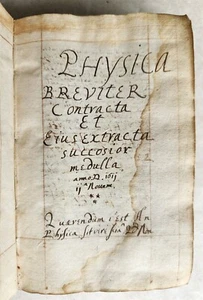 PHYSICA
BREVITER
Contracta
Et
Eius extracta
succosior
medulla
anno D. 1611
ii Novem.
Querendum i est An
Physica sit